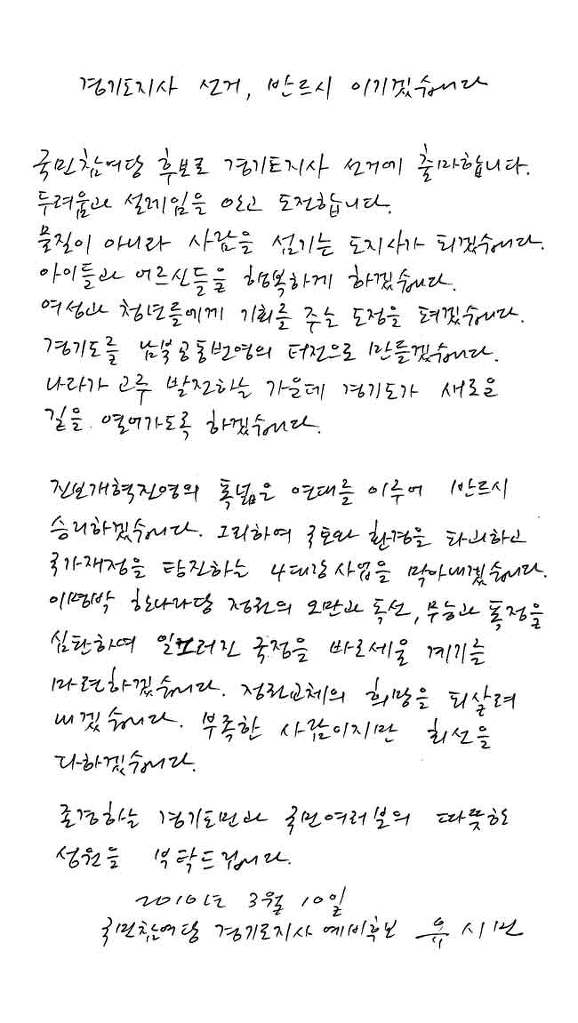 경기도지사 선거, 반드시 이기겠습니다
국민참여당 후보로 경기도지사 선거에 출마합니다.
두려움과 설레임을 안고 도전합니다.
물질이 아니라 사람을 섬기는 도지사가 되겠습니다.
아이들과 어르신들을 행복하게 하겠습니다.
여성과 청년들에게 기회를 주는 도정을 펴겠습니다.
경기도를 남북공동번영의 터전으로 만들겠습니다.
나라가 고루 발전하는 가운데 경기도가 새로운
길을 열어가도록 하겠습니다.
진보개혁진영의 폭넓은 연대를 이루어 반드시
승리하겠습니다. 그리하여 국토와 환경을 파괴하고
국가재정을 탕진하는 4대강사업을 막아내겠습니다.
이명박 한나라당 정권의 오만과 독선, 무능과 폭정을
심판하여 일그러진 국정을 바로세울 계기를
마련하겠습니다. 정권교체의 희망을 되살려
내겠습니다. 부족한 사람이지만 최선을
다하겠습니다.
존경하는 경기도민과 국민여러분의 따뜻한
성원을 부탁드립니다.
2010년 3월 10일
국민참여당 경기도지사 예비후보 유시민